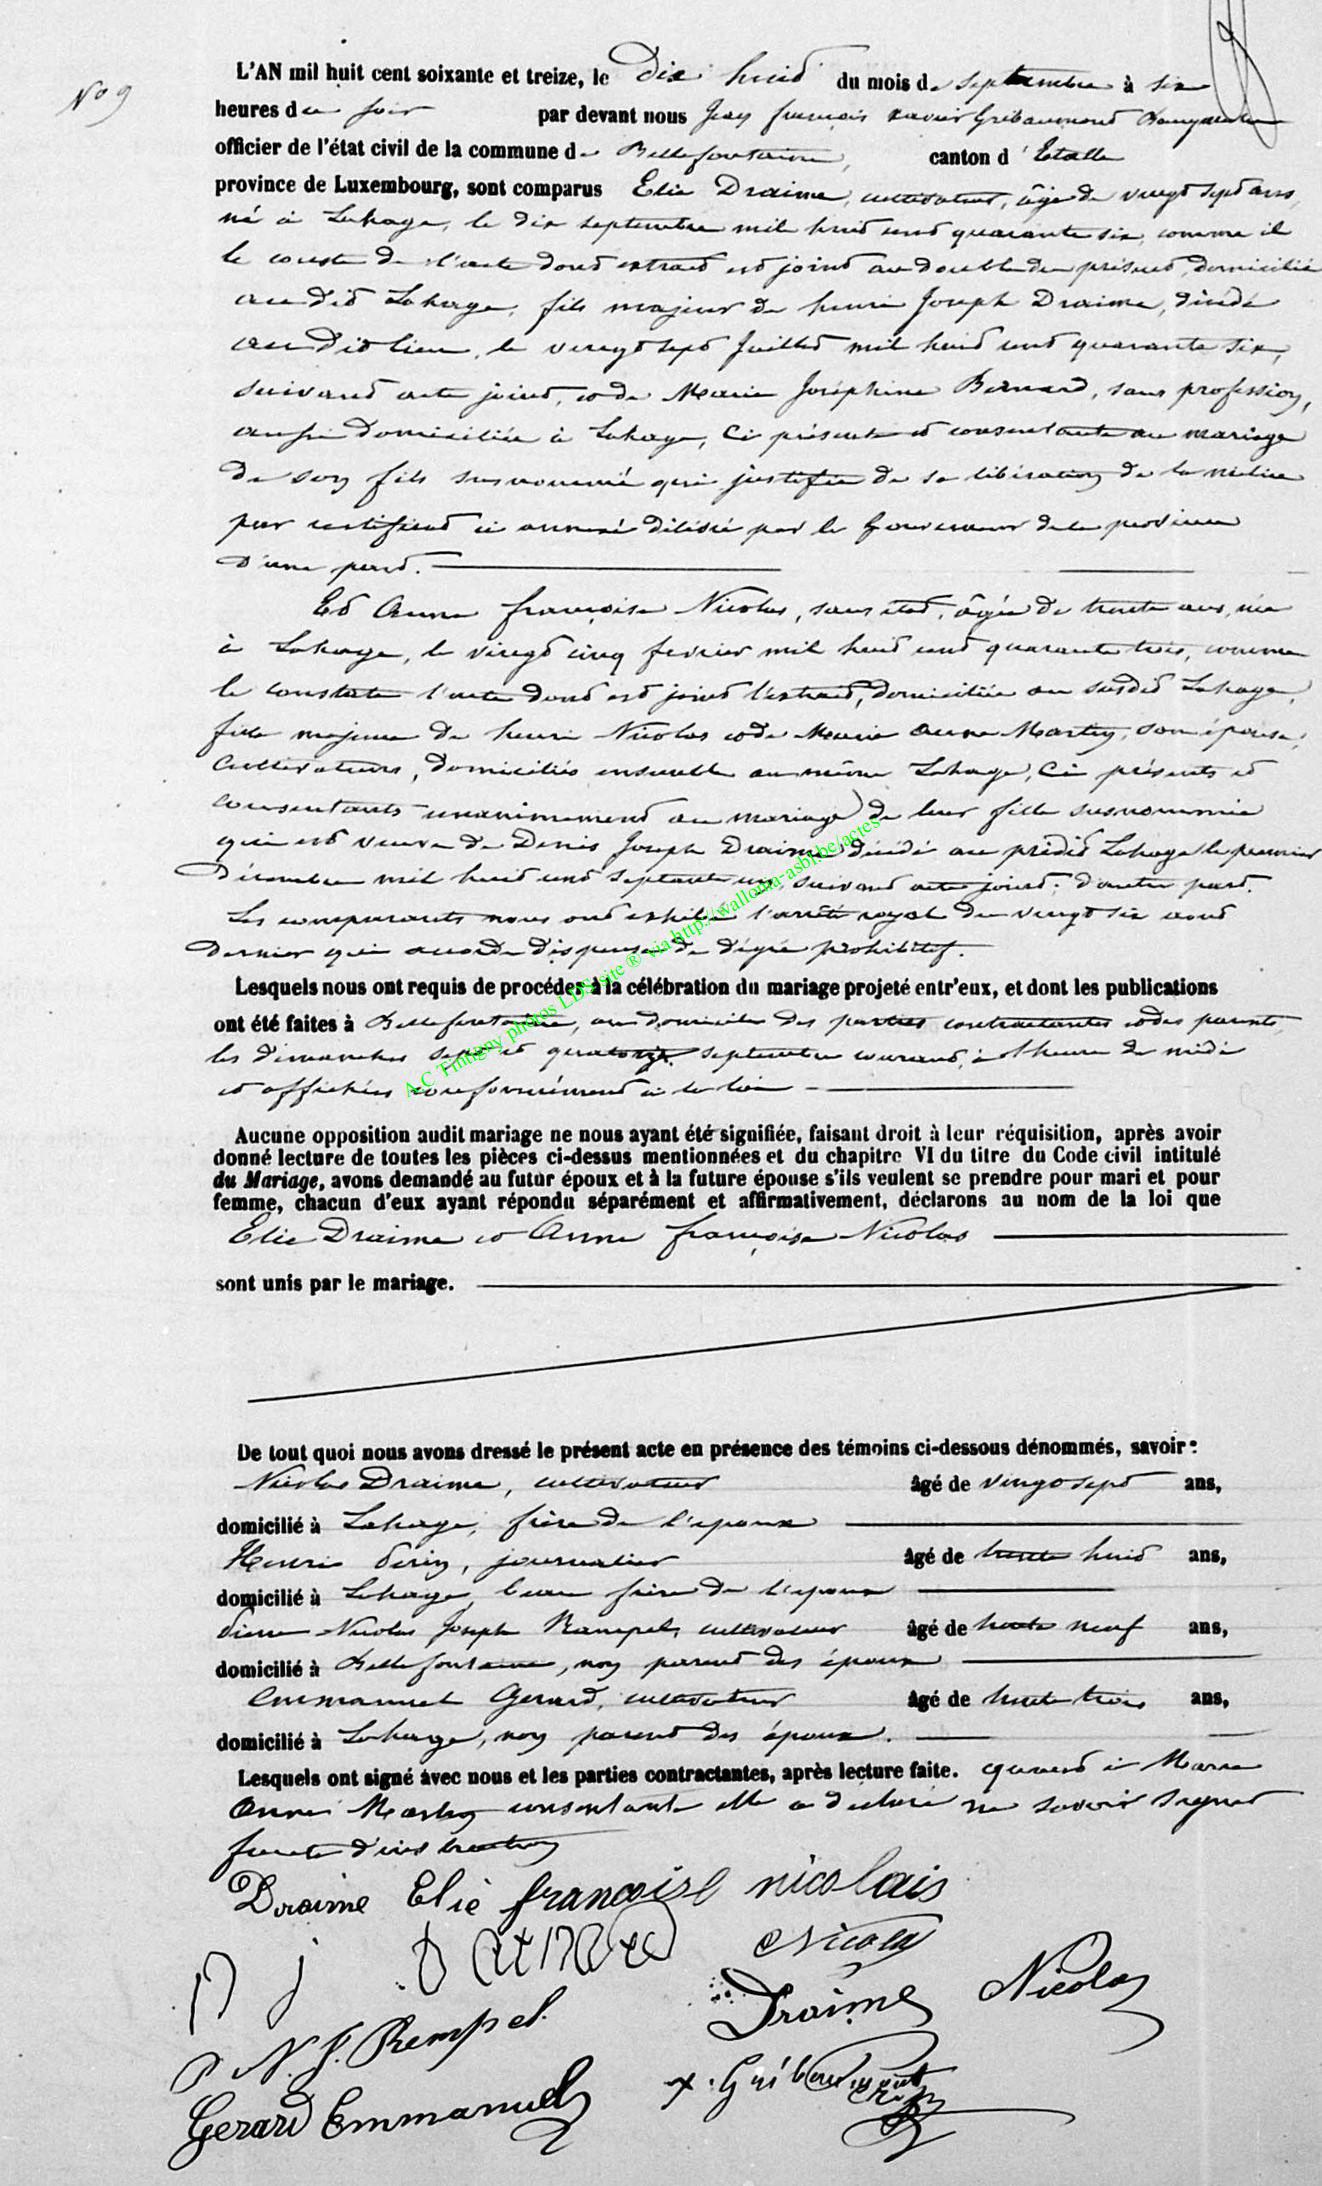 N° 9
L'AN mil huit cent soixante et treize, le Dix huit du mois de septembre à six
heures du soir par devant nous Jean françois xavier Gribaumont Bourgmestre
officier de l'état civil de la commune de Bellefontaine, canton d'Etalle
province de Luxembourg, sont comparus Elie Draime, cultivateur, âgé de vingt sept ans,
né à Lahage, le dix septembre mil huit cent quarante six, comme il
le conste de l'acte dont extrait est joint au double du présent, domicilié
au dit Lahage, fils majeur de henri Joseph Draime, décédé
au dit lieu, le vingt sept Juillet mil huit cent quarante six,
suivant acte joint, et de Marie Joséphine Bernard, sans profession,
aussi domiciliée à Lahage, ci présente et consentante au mariage
de son fils susnommé qui justifie de sa libération de la milice
par certificat ci annexé délivré par le Gouverneur de la province
D'une part.
Et Anne françoise Nicolas, sans état, âgée de trente ans, née
à Lahage, le vingt cinq fevrier mil huit cent quarante trois, comme
le constate l'acte dont est joint l'extrait, domiciliée au susdit Lahage,
fille majeure de henri Nicolas et de Marie Anne Martin, son épouse,
Cultivateurs, domiciliés ensemble au même Lahage, ci présents et
consentants unanimement au mariage de leur fille susnommée
qui est veuve de Denis Joseph Draime décédé au prédit Lahage le premier
Décembre mil huit cent septante un, suivant acte joint; d'autre part.
Les comparants nous ont exhibé l'arrêté royal du vingt six aout
dernier qui accorde dispense de dégré prohibitif.
A.C Tintigny photos LDS site ® via http://wallonia-asbl.be/actes
Lesquels nous ont requis de procéder à la célébration du mariage projeté entr'eux, et dont les publications
ont été faites à Bellefontaine, au domicile des parties contractantes et des parents,
les dimanches sept et quatorze septembre courant, à l'heure de midi
et affichées conformément à la loi
Aucune opposition audit mariage ne nous ayant été signifiée, faisant droit à leur réquisition, après avoir
donné lecture de toutes les pièces ci-dessus mentionnées et du chapitre VI du titre du Code civil intitulé
du Mariage, avons demandé au futur époux et à la future épouse s'ils veulent se prendre pour mari et pour
femme, chacun d'eux ayant répondu séparément et affirmativement, déclarons au nom de la loi que
Elie Draime et Anne françoise Nicolas
sont unis par le mariage.
De tout quoi nous avons dressé le présent acte en présence des témoins ci-dessous dénommés, savoir :
Nicolas Draime, cultivateur âgé de vingt sept ans,
domicilié à Lahage, frère de l'epoux
Henri journalier âgé de trente huit ans,
domicilié à Lahage, beau frère de l'epoux
Nicolas Joseph Rempel, cultivateur âgé de trente neuf ans,
domicilié à Bellefontaine, non parent des époux
Emmanuel Gerard, cultivateur âgé de trente trois ans,
domicilié à Lahage, non parent des époux.
Lesquels ont signé avec nous et les parties contractantes, après lecture faite. quant à Marie
Anne Martin consentante elle a declaré ne savoir signer
faute d'instruction
Draime Elie françoise nicolais
Nicolas
Draime Nicolas
P N. J. Rempel.
x. Gribaumont
Gerard Emmanuel